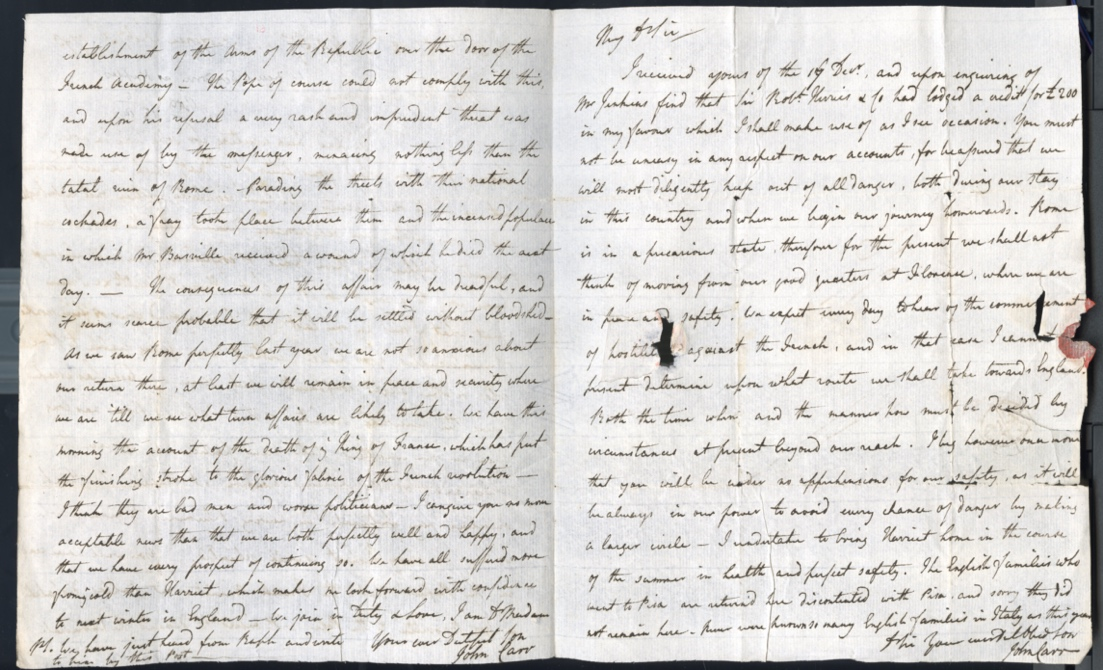 establishment of the Arms of the Republic over the door of the
French Academy — The Pope of course could not comply with this,
and upon his refusal a very rash and imprudent threat was
made use of by the messenger, menacing nothing less than the
total ruin of Rome. — Parading the streets with their national
cockades, a fray took place between them and the incensed populace
in which Mr Basville received a wound of which he died the next
day. — The consequences of this affair may be dreadful, and
it seems scarce probable that it will be settled without bloodshed —
As we saw Rome perfectly last year we are not so anxious about
our return there, at least we will remain in peace and security where
we are 'till we see what turn affairs are likely to take. We have this
morning the account of the death of ye King of France, which has put
the finishing stroke to the glorious fabric of the French revolution —
I think they are bad men and worse politicians — I can give you no more
acceptable news than that we are both perfectly well and happy, and
that we have every prospect of continuing so. We have all suffered more
from cold than Harriet, which makes me look forward with confidence
to next winter in England — We join in Duty & Love, I am Dr Madam
Your ever Dutiful Son
John Carr
PS. We have just heard from Ralph and write
to him by this Post —
My Dr Sir
I received yours of the 19 Decr. and upon enquiring of
Mr Jenkins find that Sir Robt. Herries & Co had lodged a credit for £200
in my favour which I shall make use of as I see occasion. You must
not be uneasy in any respect on our accounts, for be assured that we
will most diligently keep out of all danger, both during our stay
in this country and when we begin our journey homewards. Rome
is in a precarious state, therefore for the present we shall not
think of moving from our good quarters at Florence, where we are
in peace and safety. We expect every day to hear of the commencement
of hostilities against the French, and in that case I cannot
present determine upon what route we shall take towards England.
Both the time when and the manner how must be decided by
circumstances at present beyond our reach. I beg however once more
that you will be under no apprehensions for our safety, as it will
be always in our power to avoid every chance of danger by making
a larger circle — I undertake to bring Harriet home in the course
of the summer in health and perfect safety. The English families who
went to Pisa are returned here discontented with Pisa, and sorry they did
not remain here. Never were known so many English families in Italy as this year
Dr Sir Your ever dutiful Son
John Carr